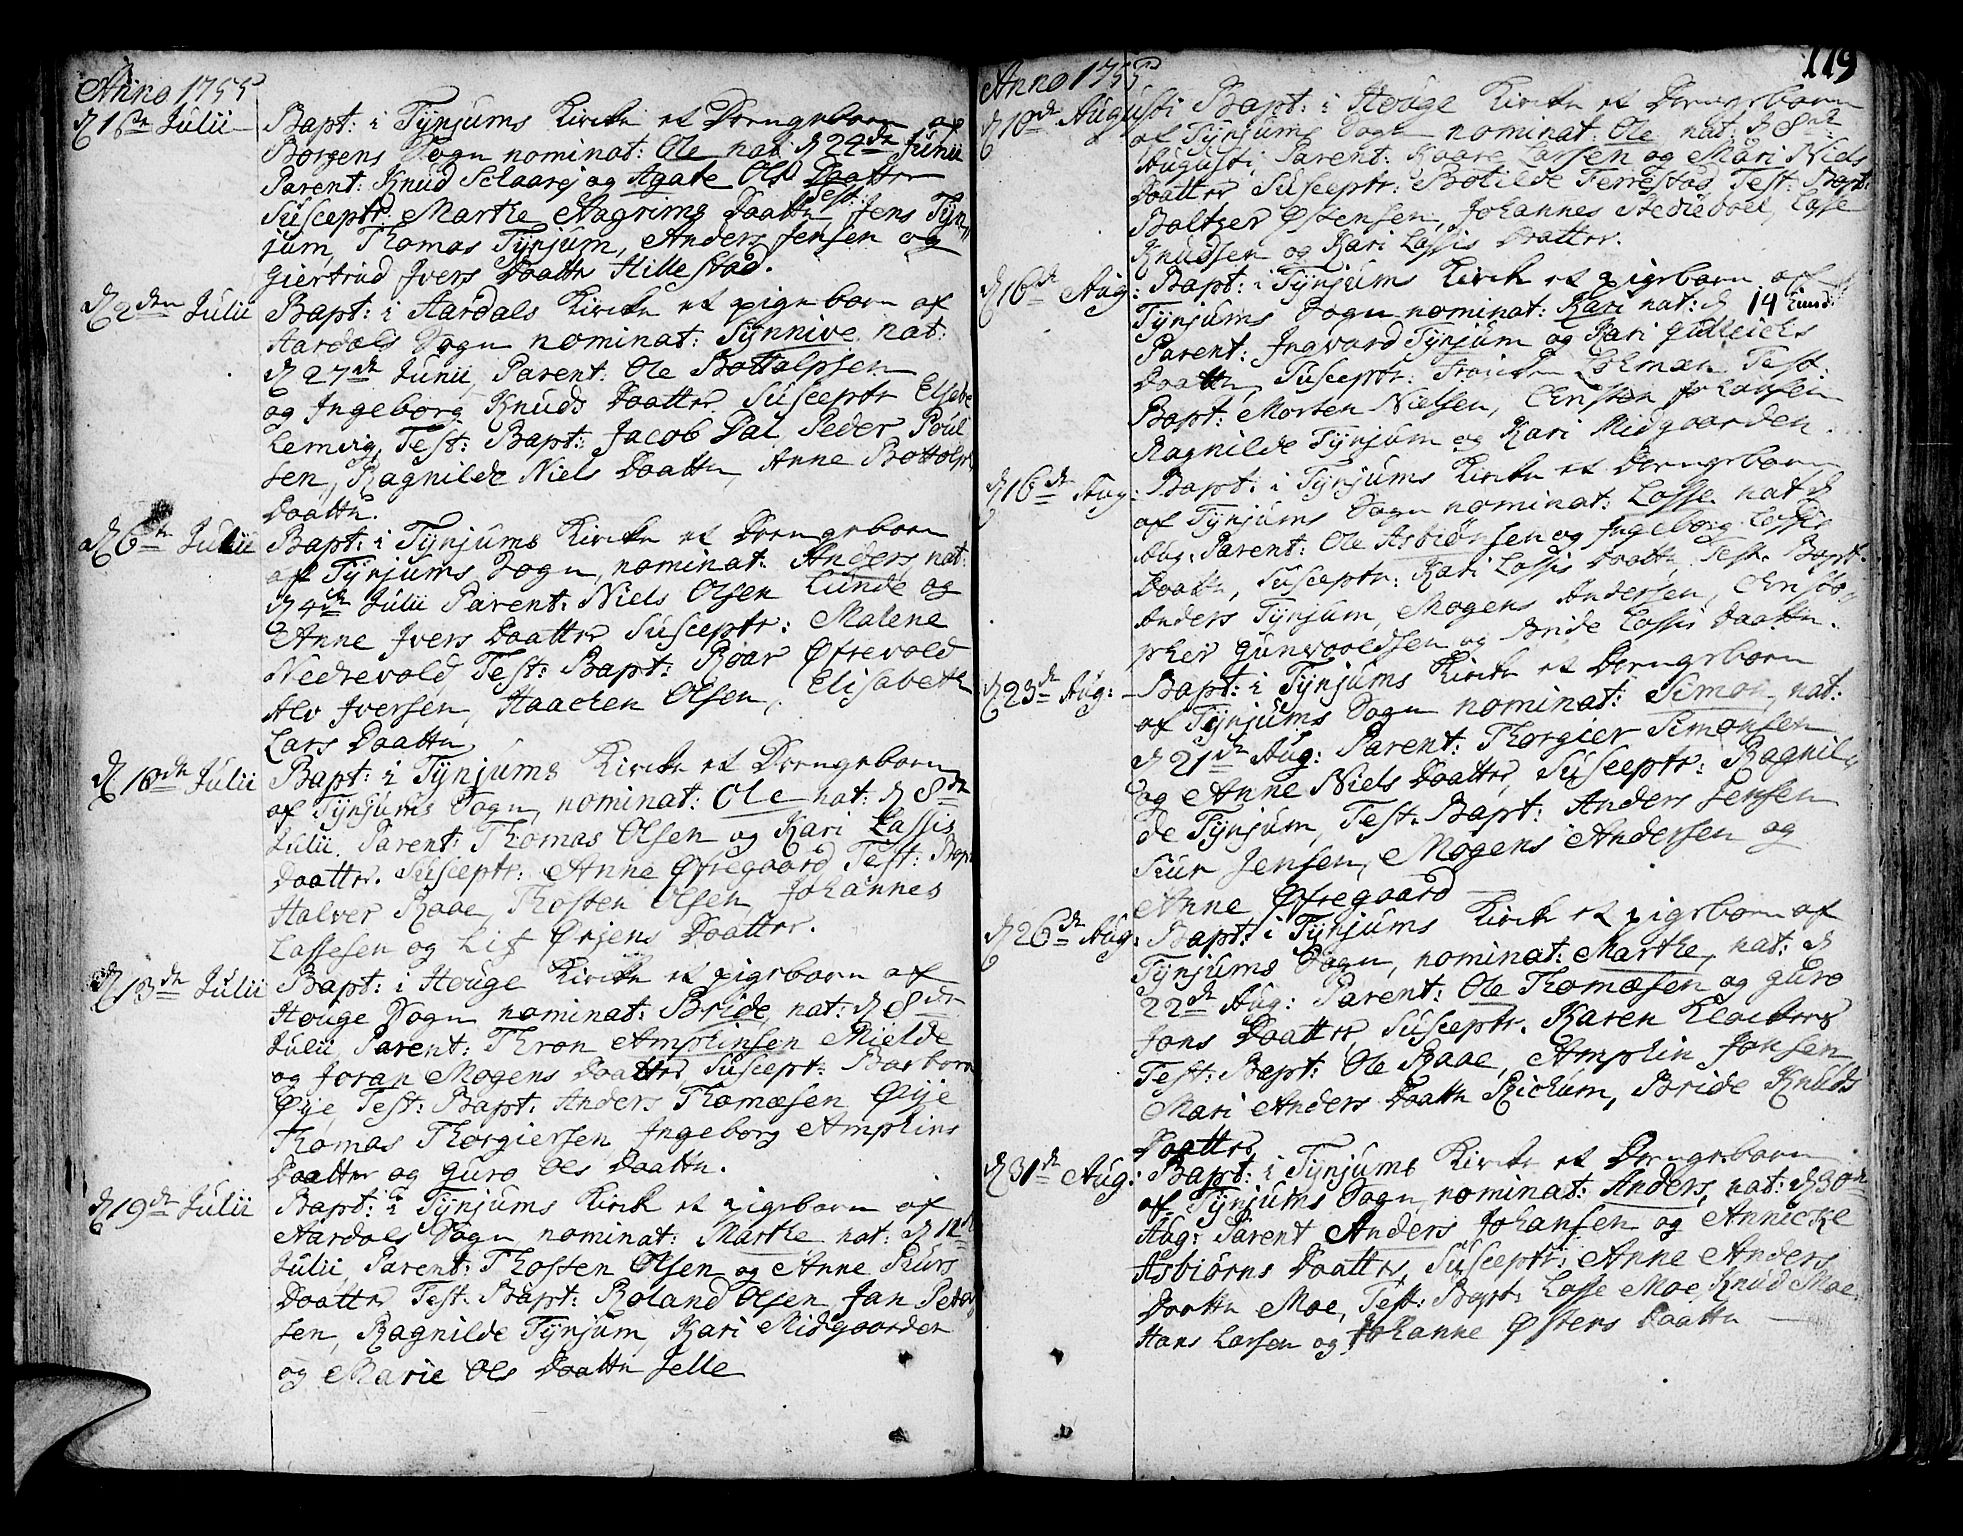 Anno 1755
d 1ste Julii
Bapt: i Tÿnjums Kircke et Drengebarn af
Borgens Sogn nominat: Ole nat: d 24de Junii
Parent: Knud Schaarej og Agate Ols Daatter
Susceptr. Marthe Aagrims Daatter Test: Jens Tÿn-
jum, Thomas Tÿnjum, Anders Jensen og
Giertrud Jvers Daatter Hillestad.
d 2den Julii
Bapt: i Aardals Kircke et pigebarn af
Aardals Sogn nominat: Sÿnnive nat:
d 27de Junii, Parent: Ole Bottolpsen
og Ingeborg Knuds Daatter Susceptr Elsebe
Lemvig, Test: Bapt: Jacob Dal Peder Poul
sen, Ragnilde Niels Daatter, Anne Bottolps
Daatter.
d 6te Julii
Bapt: i Tÿnjums Kircke et Drengebarn
af Tÿnjums Sogn, nominat: Anders nat:
d 4de Julii Parent: Niels Olsen Lunde og
Anne Jvers Daatter Susceptr: Malene
Nedrevold Test: Bapt: Roar Øfrevold
Alv Jversen, Haachen Olsen, Elisabeth
Lars Daatter
d 10de Julii
Bapt: i Tÿnjums Kircke et Drengebarn
af Tÿnjums Sogn, nominat: Ole nat: d 8de
Julii Parent: Thomas Olsen og Kari Lassis
Daatter. Susceptr: Anne Øfregaard Test: Bapt
Halver Raae, Thosten Olsen, Johannes
Lassesen og Lif Ørjens Daatter.
d 13de Julii
Bapt: i Houge Kircke et pigebarn af
Houge Sogn nominat: Bride, nat: d 8de
Julii Parent: Thron Amphinsen Mielde
og Joran Mogens Daatter Suscept: Barbara
Øÿe, Test: Bapt: Anders Thomæsen Øÿe
Thomas Thorgiersen, Ingeborg Amphins
Daatter og Guro Ols Daatter.
d 19de Julii
Bapt: i Tÿnjums Kirck et pigebarn af
Aardals Sogn nominat: Marthe nat: d 11de
Julii Parent: Thosten Olsen og Anne Siurs
Daatter Test: Bapt: Roland Olsen Jan Peter
sen, Ragnilde Tÿnjum, Kari Midgaarden
og Marie Ols Daatter Jelle
119
Anno 1755
d 10de Augusti Bapt: i Houge Kircke et Drengebarn
af Tÿnjums Sogn nominat: Ole nat: d 8de
Augusti, Parent: Kaare Larsen og Mari Niels
Daatter Susceptr: Botilde Ferrestad Test: Bapt:
Baltzer Østensen, Johannes Lasse
Knudsen og Kari Lassis Daatter.
d 16de Aug:
Bapt: i Tÿnjums Kirck et pigebarn af
Tÿnjums Sogn nominat: Kari nat: d 14
Parent: Ingvard Tÿnjum og Kari
Daatter, Susceptr: Lohman Test:
Bapt: Morten Nielsen, Christen Johansen
Ragnilde Tÿnjum og Kari Midgaarden.
d 16de Aug:
Bapt: i Tÿnjums Kircke et Drengebarn
af Tÿnjums Sogn nominat: Lasse nat d
Aug: Parent: Ole Asbiørnsen og Ingeborg Lassis
Daatter, Susceptr: Kari Lassis Daatter Test: Bapt:
Anders Tÿnjum, Mogens Andersen, Christo
pher Gunvoaldsen og Bride Lassis Daatter.
d 23de Aug:
Bapt: i Tÿnjums Kirck et Drengebarn
af Tÿnjums Sogn nominat: Simon, nat:
d 21de Aug: Parent: Thorgier Simonsen
og Anne Niels Daatter, Susceptr: Ragnil
de Tÿnjum, Test: Bapt: Anders Jensen
Siur Jensen, Mogens Andersen og
Anne Øfregaard
d 26de Aug:
Bapt: i Tÿnjums Kirck et pigebarn af
Tÿnjums Sogn, nominat: Marthe, nat: d
22de Aug: Parent: Ole Thomæsen og Guro
Jons Daatter, Susceptr. Karen
Test: Bapt: Ole Raae, Amphin Jonsen
Mari Anders Daatter Bride Knuds
Daatter
d 31de Aug:
Bapt: i Tÿnjums Kircke et Drengebarn
af Tÿnjums Sogn, nominat: Anders, nat: d 30de
Aug: Parent Anders Johansen og Annicke
Asbiørns Daatter, Susceptr: Anne Anders
Daatter Moe, Test: Bapt: Lasse Moe, Knud Moe
Hans Larsen og Johanne Østens Daatter